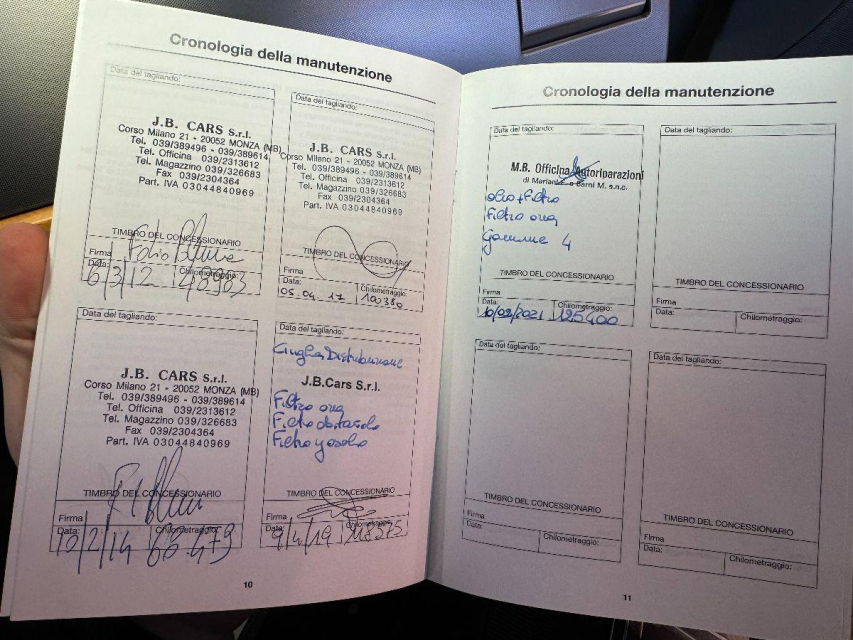 Cronologia della manutenzione
Data del tagliando:
J.B. CARS S.r.l.
Corso Milano 21 - 20052 MONZA (MB)
Tel. 039/389496 - 039/389614
Tel. Officina 039/2313612
Tel. Magazzino 039/326683
Fax 039/2304364
Part. IVA 03044840969
TIMBRO DEL CONCESSIONARIO
Firma
Data:
Chilometraggio:
6/3/12 48983
Data del tagliando:
J.B. CARS S.r.l.
Corso Milano 21 - 20052 MONZA (MB)
Tel. 039/389496 - 039/389614
Tel. Officina 039/2313612
Tel. Magazzino 039/326683
Fax 039/2304364
Part. IVA 03044840969
TIMBRO DEL CONCESSIONARIO
Firma
Data:
Chilometraggio:
05.04.17 100350
Data del tagliando:
J.B. CARS S.r.l.
Corso Milano 21 - 20052 MONZA (MB)
Tel. 039/389496 - 039/389614
Tel. Officina 039/2313612
Tel. Magazzino 039/326683
Fax 039/2304364
Part. IVA 03044840969
TIMBRO DEL CONCESSIONARIO
Firma
Data:
Chilometraggio:
/2/14 68.479
Data del tagliando:
Cinghia Distribuzione
J.B.Cars S.r.l.
Filtro aria
Filtro abitacolo
Filtro gasolio
TIMBRO DEL CONCESSIONARIO
Firma
Data:
Chilometraggio:
9/4/19 118575
10
Cronologia della manutenzione
Data del tagliando:
M.B. Officina Autoriparazioni
di Mariani e Barni M. s.n.c.
olio + Filtro
Filtro aria
Gomme 4
TIMBRO DEL CONCESSIONARIO
Firma
Data:
Chilometraggio:
10/02/2021 125400
Data del tagliando:
TIMBRO DEL CONCESSIONARIO
Firma
Data:
Chilometraggio:
Data del tagliando:
TIMBRO DEL CONCESSIONARIO
Firma
Data:
Chilometraggio:
Data del tagliando:
TIMBRO DEL CONCESSIONARIO
Firma
Data:
Chilometraggio:
11